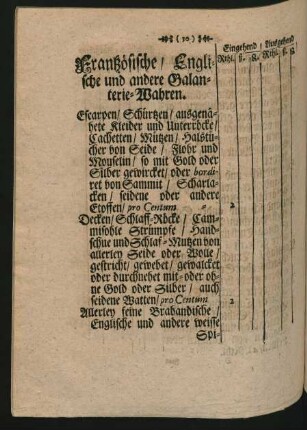 ( 10 )
Eingehend / Ausgehend
Rthl. ß. ₰. Rthl. ß. ₰.
Frantzösische / Engli-
sche und andere Galan-
terie-Wahren.
Escarpen / Schürtzen / ausgenä-
hete Kleider und Unterröcke /
Cachetten / Mützen / Halstü-
cher von Seide / Flohr und
Mouselin / so mit Gold oder
Silber gewircket / oder bordi-
ret von Sammit / Scharla-
cken / seidene oder andere
Stoffen / pro Centum 2
Decken / Schlaff-Röcke / Cam-
misohle Strümpfe / Hand-
schue und Schlaf-Mützen von
allerley Seide oder Wolle /
gestrickt / gewebet / gewalcket
oder durchnehet mit oder oh-
ne Gold oder Silber / auch
seidene Watten / pro Centum 2
Allerley feine Brabandische /
Englische und andere weisse
Spi-